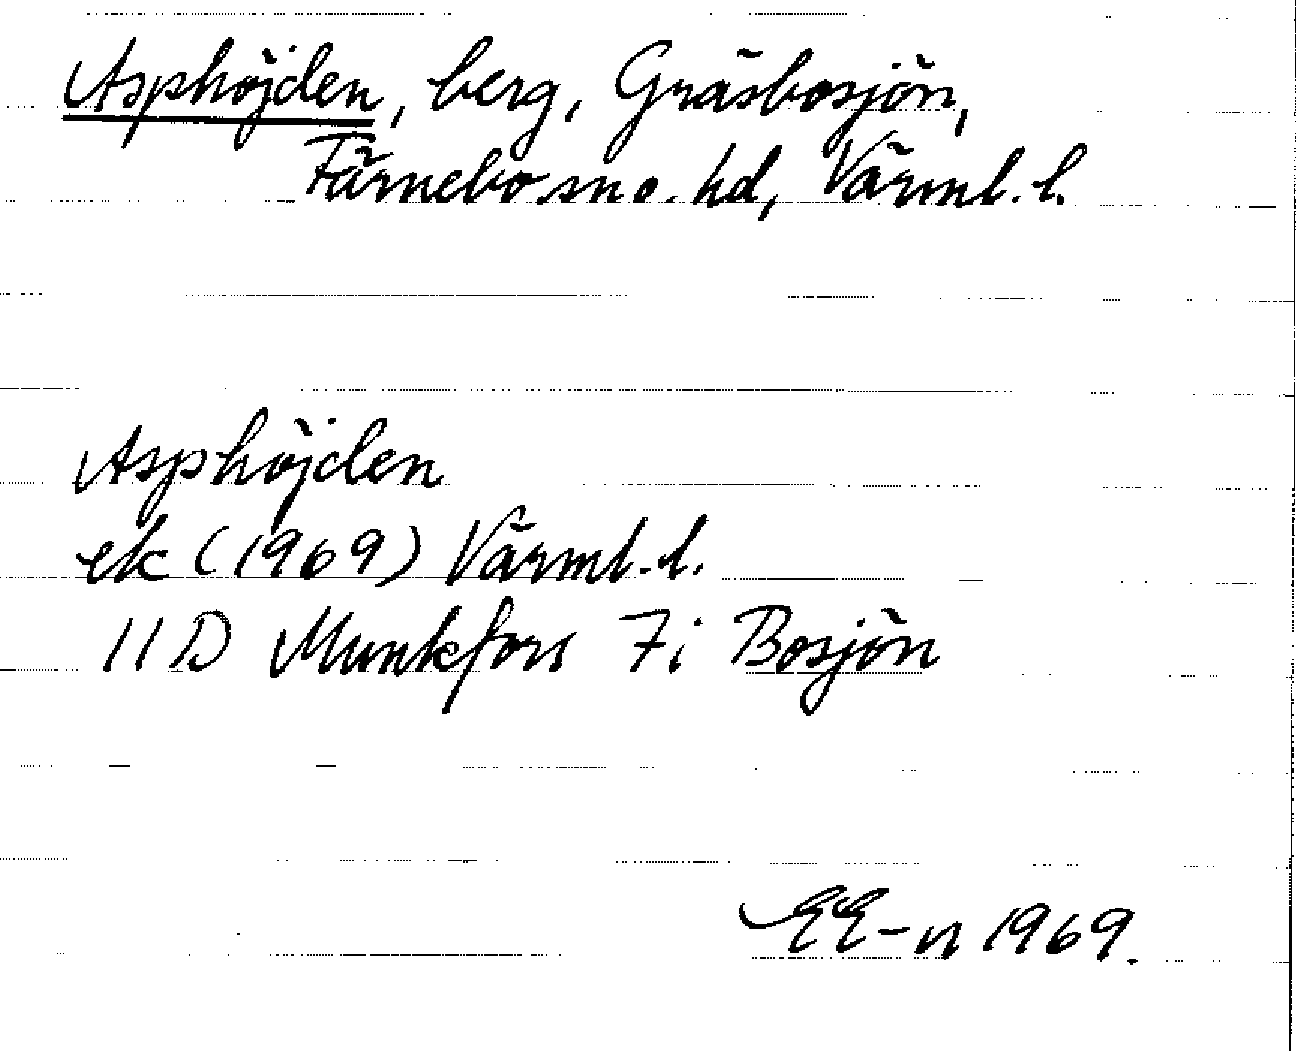 Asphöjden, berg, Gräsbosjön,
Färnebo sn o. hd, Värml. l.
Asphöjden
ek (1969) Värml. l.
11 D Munkfors 7 i Bosjön
EE-n 1969.